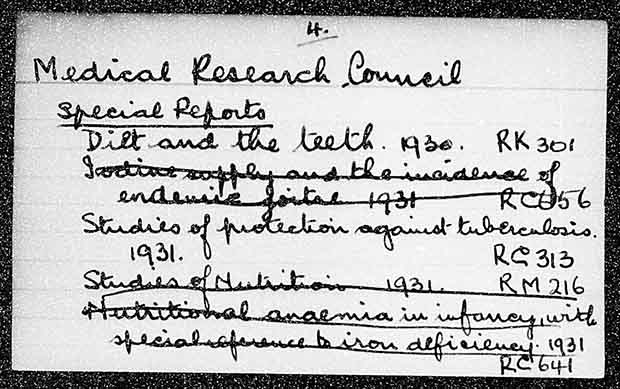 4.
Medical Research Council
Special Reports
Diet and the teeth. 1930. RK 301
Iodine supply and the incidence of
endemic goitre 1931 RC 656
Studies of protection against tuberculosis.
1931. RC 313
Studies of Nutrition 1931. RM 216
Nutritional anaemia in infancy, with
special reference to iron deficiency. 1931
RC 641